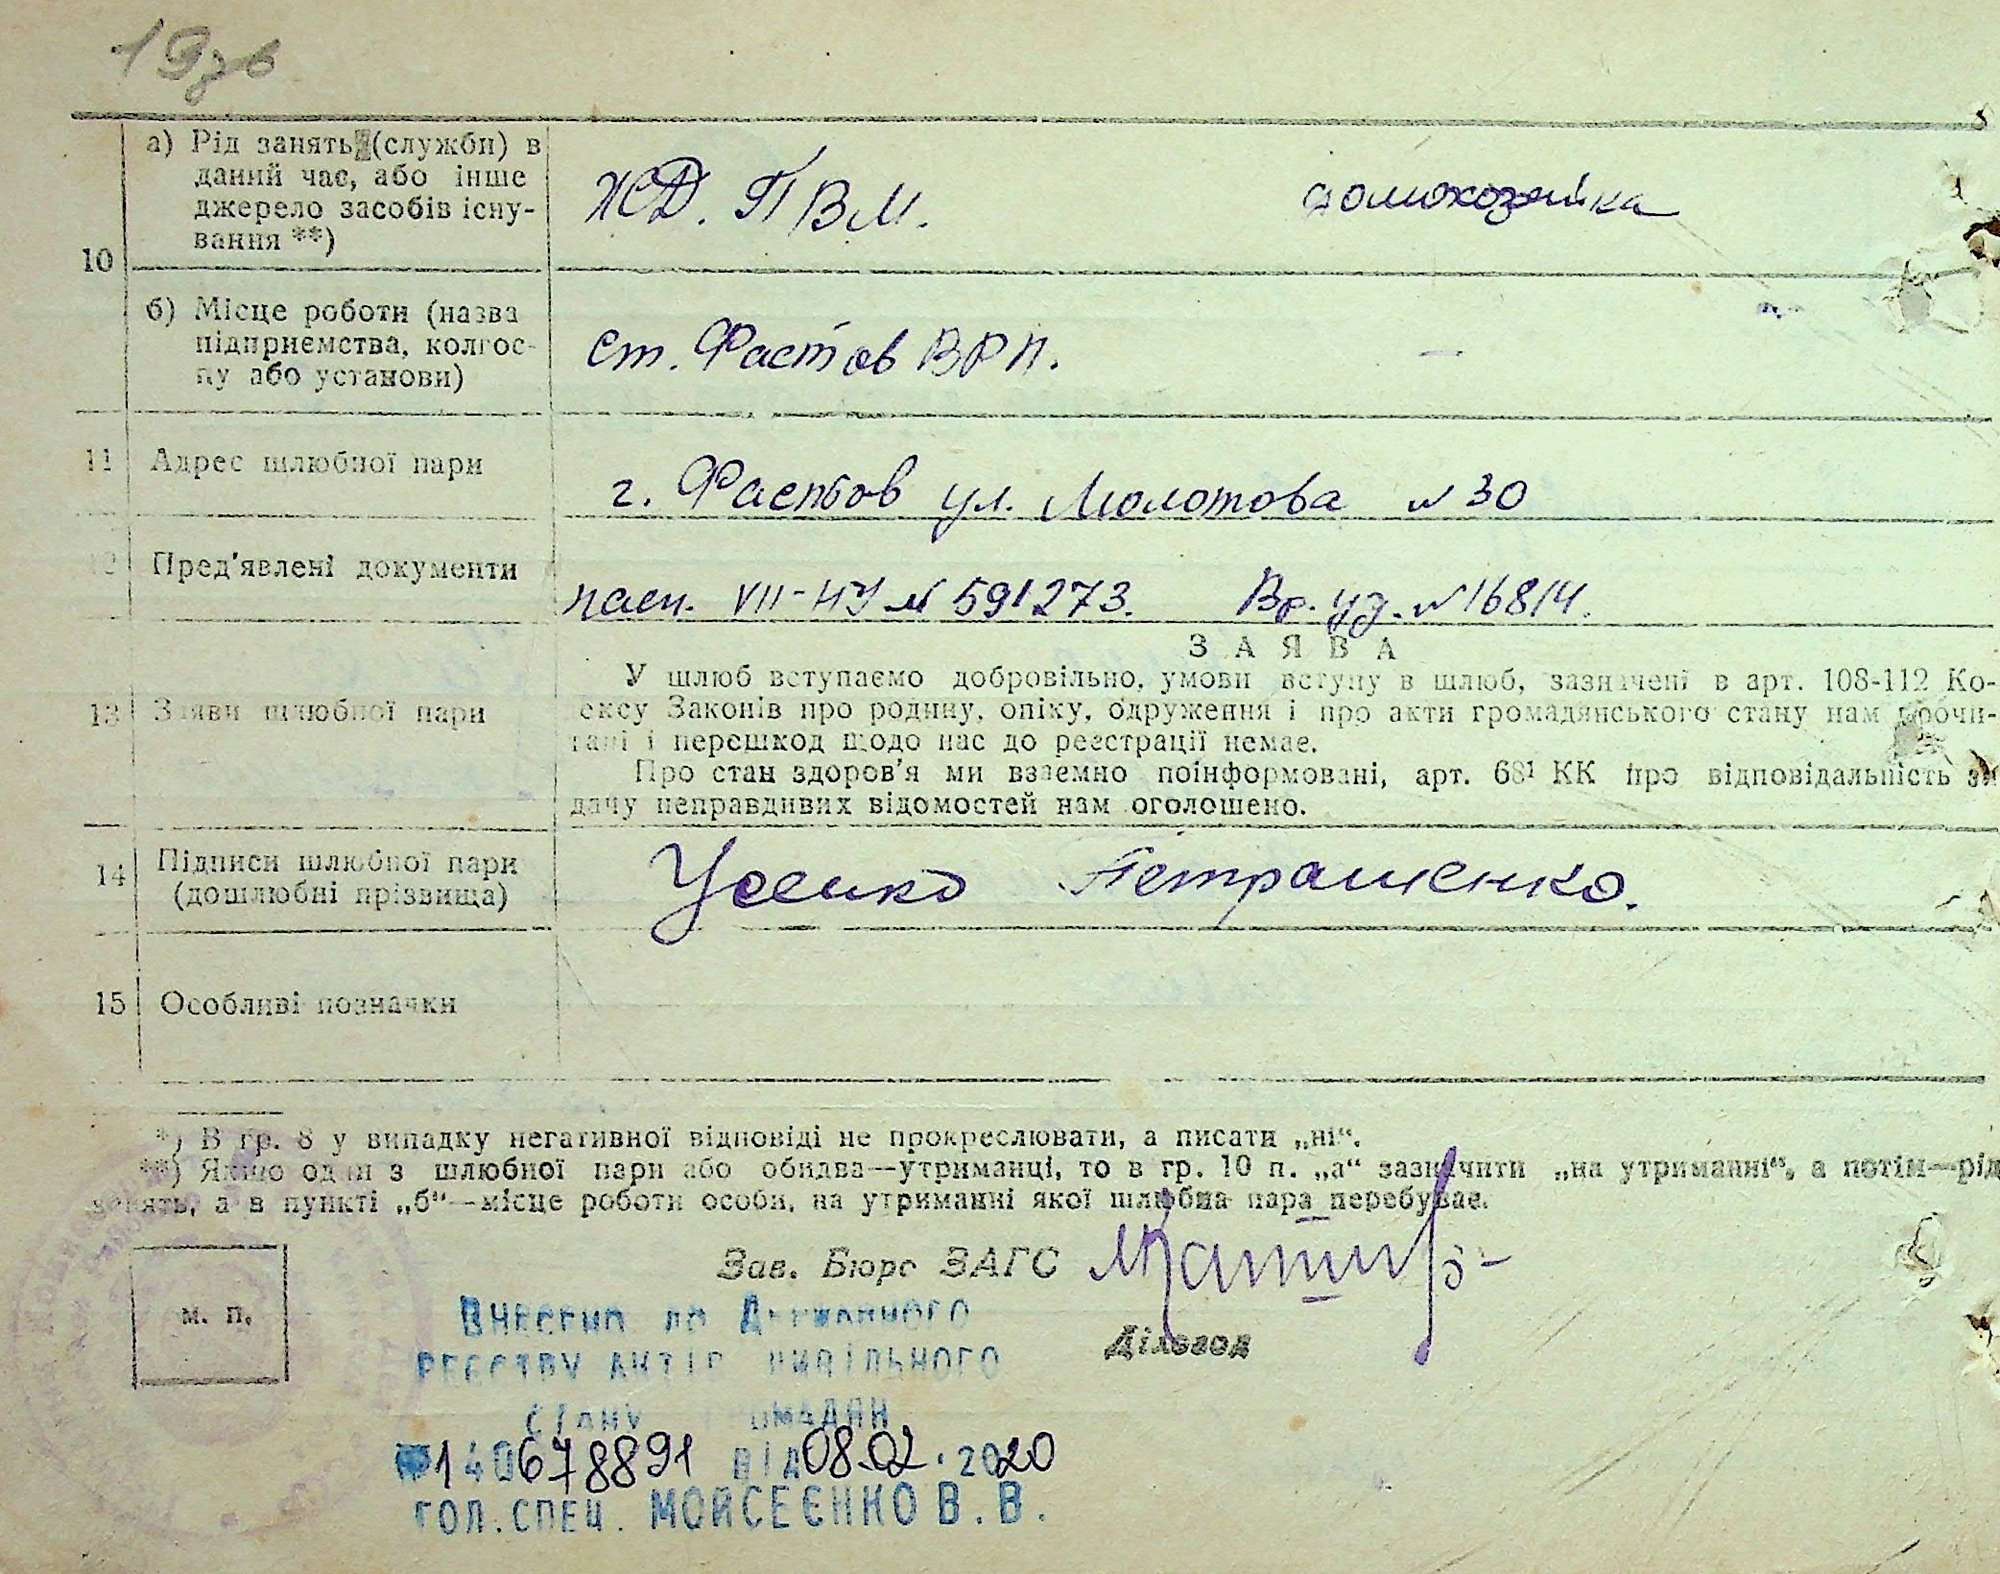 19зв
а) Рід занять (служби) в
даний час, або інше
джерело засобів існу-
вання **)
10
ЖД. П В М.
домохозяйка
б) Місце роботи (назва
підприємства, колгос-
пу або установи)
ст. Фастов ВРП.
—
11
Адрес шлюбної пари
г. Фастов ул. Молотова № 30
12
Пред'явлені документи
пасп. VII-НУ № 591273. Вр. уд. № 16814.
13
Заяви шлюбної пари
ЗАЯВА
У шлюб вступаємо добровільно, умови вступу в шлюб, зазначені в арт. 108-112 Ко-
дексу Законів про родину, опіку, одруження і про акти громадянського стану нам прочи-
тані і перешкод щодо нас до реєстрації немає.
Про стан здоров'я ми взаємно поінформовані, арт. 68¹ КК про відповідальність за
дачу неправдивих відомостей нам оголошено.
14
Підписи шлюбної пари
(дошлюбні прізвища)
Усенко Петрашенко.
15
Особливі позначки
*) В гр. 8 у випадку негативної відповіді не прокреслювати, а писати „ні“.
**) Якщо один з шлюбної пари або обидва—утриманці, то в гр. 10 п. „а“ зазначити „на утриманні“, а потім—рід
занять, а в пункті „б“—місце роботи особи, на утриманні якої шлюбна пара перебуває.
Зав. Бюро ЗАГС
М. П.
Діловод
Внесено до Державного
реєстру актів цивільного
стану громадян
№140678891 від 08.02.2020
гол.спец. Мойсеєнко В.В.